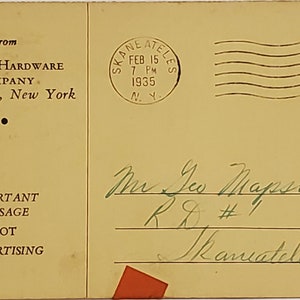 rom
HARDWARE
MPANY
, New York
RTANT
SAGE
OT
RTISING
SKANEATELES
FEB 15
7 PM
1935
N. Y.
Mr Geo Maps
R D # 1
Skaneatel